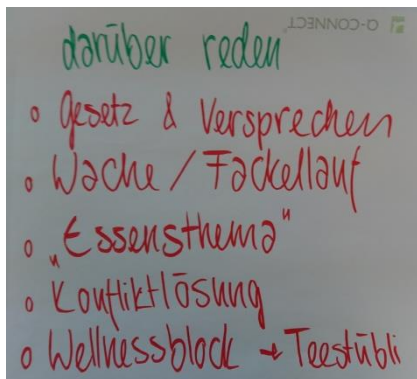 Q-CONNECT
darüber reden
o Gesetz & Versprechen
o Wache / Fackellauf
o „Essensthema"
o Konfliktlösung
o Wellnessblock → Teestübli